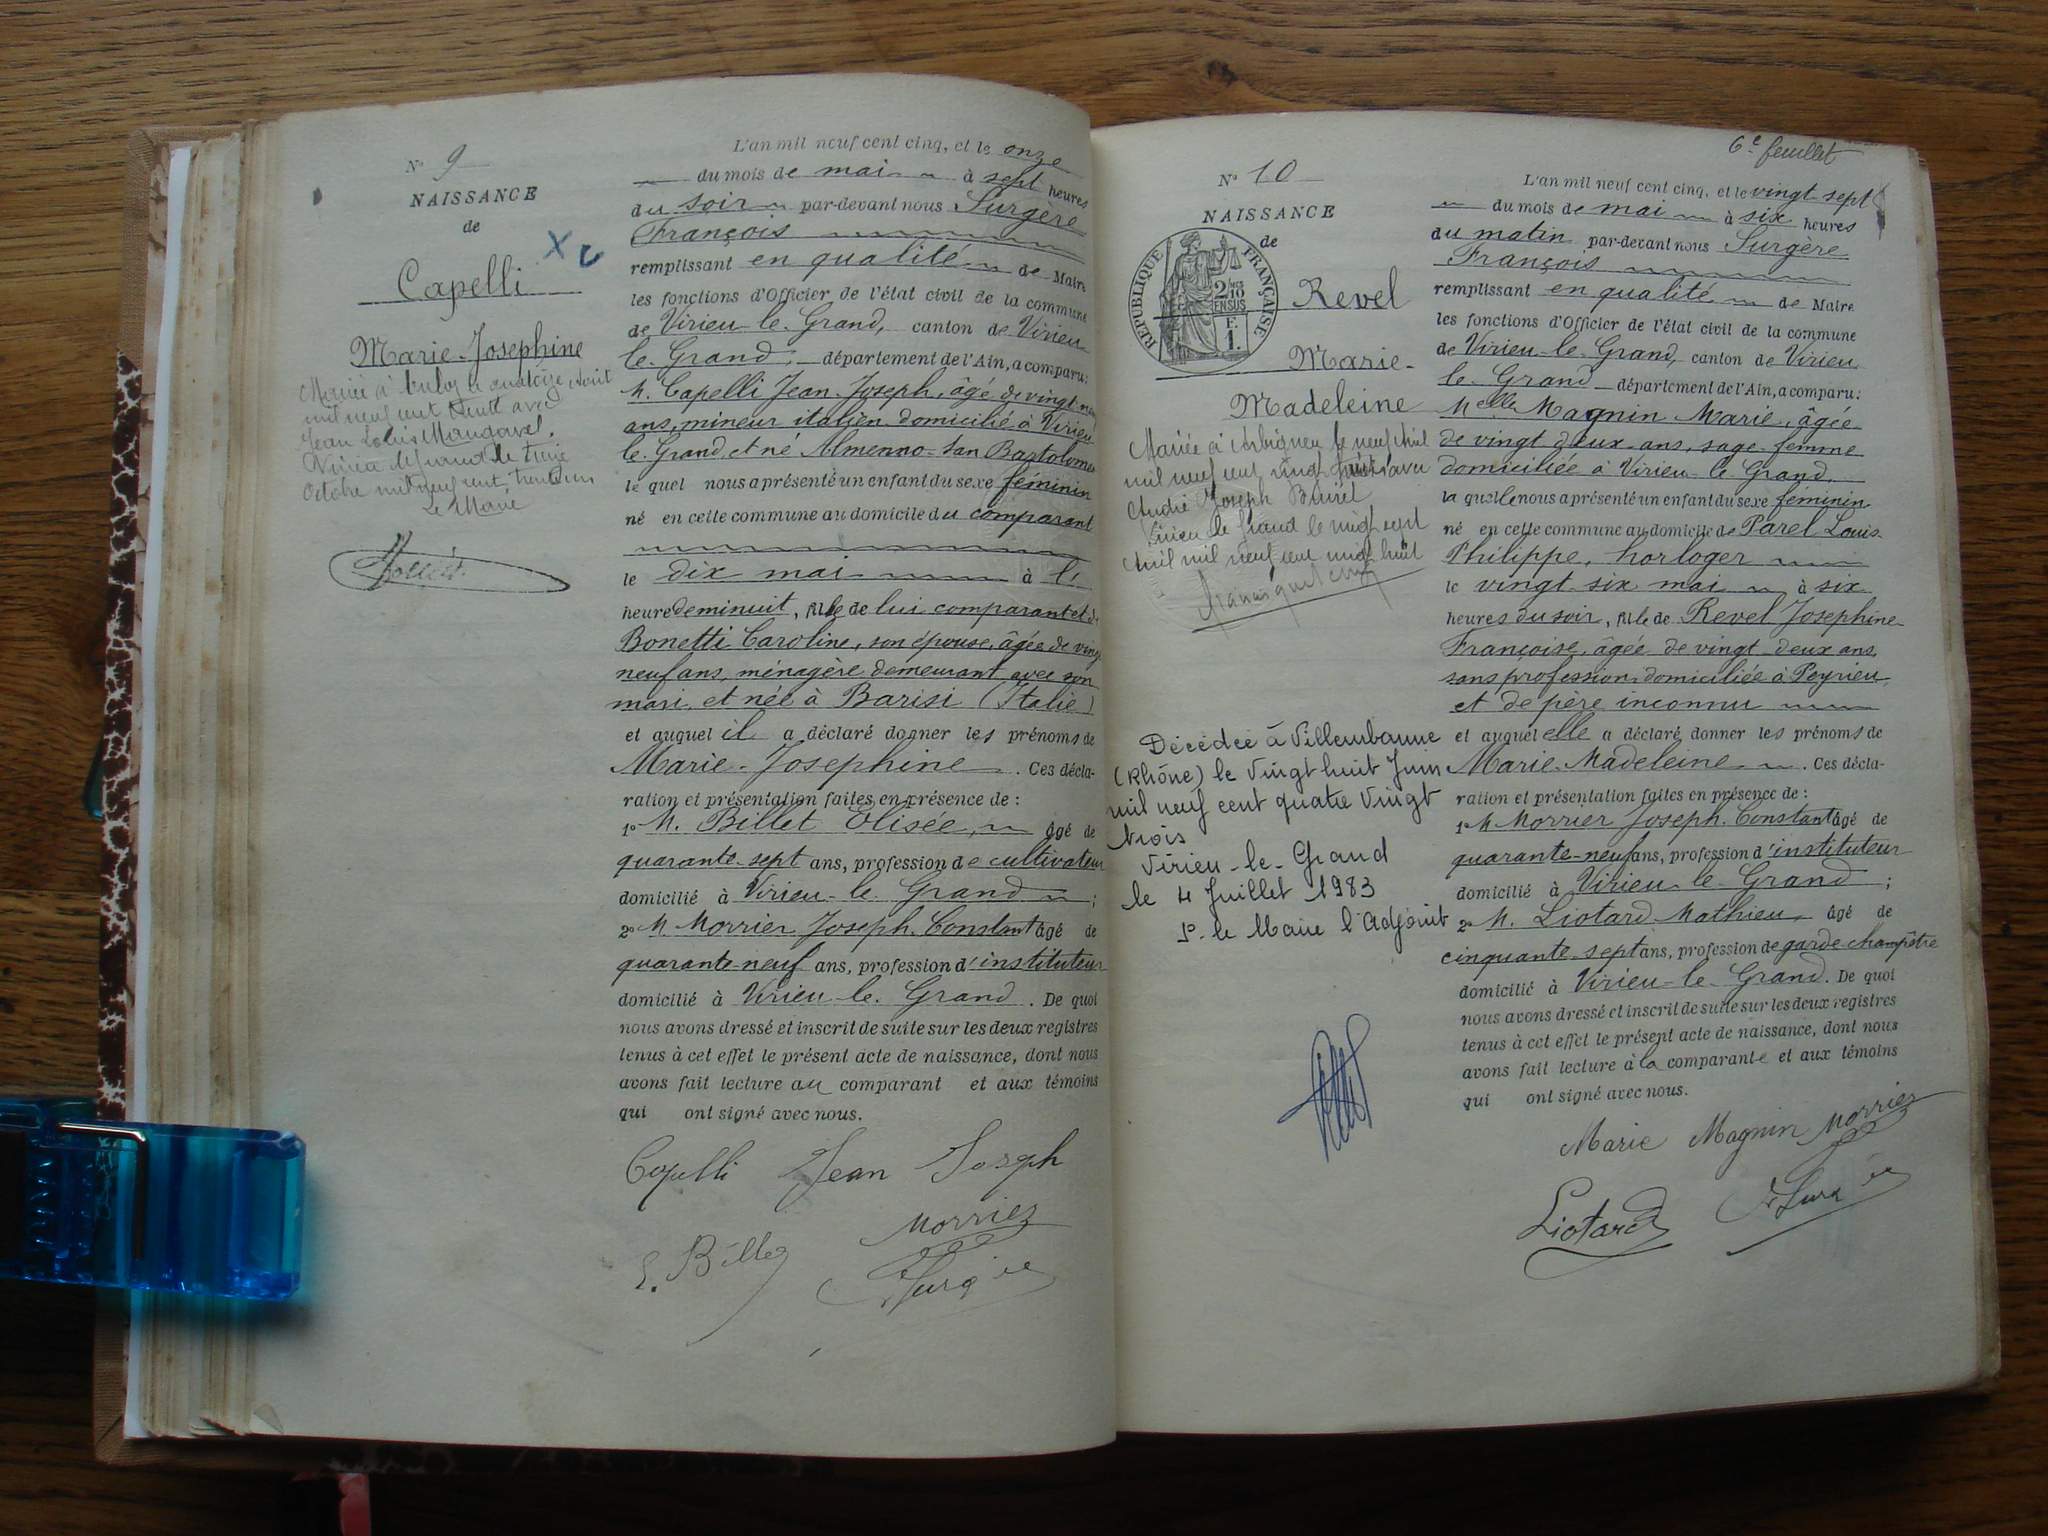 N° 9
NAISSANCE
de
Capelli
Marie-Josephine
Mariée à le quatorze Août
mil neuf cent trente avec
Jean Louis
Virieu le Grand le treize
Octobre mil neuf cent
Le Maire
L'an mil neuf cent cinq, et le onze
du mois de mai à sept heures
du soir par-devant nous Surgère
François
remplissant en qualité de Maire
les fonctions d'Officier de l'état civil de la commune
de Virieu-le-Grand, canton de Virieu
le-Grand, département de l'Ain, a comparu:
M. Capelli Jean Joseph, âgé de vingt-neuf
ans, mineur italien domicilié à Virieu
le-Grand et né Almenno-San Bartolomeo
le quel nous a présenté un enfant du sexe féminin
né en cette commune au domicile du comparant
le dix mai à
heure de minuit, fille de lui comparant et de
Bonetti Caroline, son épouse, âgée de vingt
neuf ans, ménagère demeurant avec son
mari, et née à Barisi (Italie)
et auquel il a déclaré donner les prénoms de
Marie-Josephine. Ces décla-
ration et présentation faites en présence de :
1° M. Billet Elisée, âgé de
quarante-sept ans, profession de cultivateur
domicilié à Virieu-le-Grand ;
2° M. Morrier Joseph-Constant âgé de
quarante-neuf ans, profession d'instituteur
domicilié à Virieu-le-Grand. De quoi
nous avons dressé et inscrit de suite sur les deux registres
tenus à cet effet le présent acte de naissance, dont nous
avons fait lecture au comparant et aux témoins
qui ont signé avec nous.
Capelli Jean Joseph
Morrier
E. Billet
Surgère
6e feuillet
N° 10
NAISSANCE
de
RÉPUBLIQUE FRANÇAISE
2/10
EN SUS
F.
1.
Revel
Marie-
Madeleine
Mariée à le neuf Avril
mil neuf cent vingt huit avec
André Joseph
Virieu le Grand le vingt sept
Avril mil neuf cent vingt huit
Décédée à Villeurbanne
(Rhône) le Vingt huit Juin
mil neuf cent quatre Vingt
trois
Virieu-le-Grand
le 4 Juillet 1983
P. le Maire l'Adjoint
L'an mil neuf cent cinq, et le vingt-sept
du mois de mai à six heures
du matin par-devant nous Surgère
François
remplissant en qualité de Maire
les fonctions d'Officier de l'état civil de la commune
de Virieu-le-Grand, canton de Virieu
le-Grand département de l'Ain, a comparu:
Melle Magnin Marie, âgée
de vingt deux ans, sage-femme
domiciliée à Virieu-le-Grand,
la quelle nous a présenté un enfant du sexe féminin
né en cette commune au domicile de Parel Louis
Philippe, horloger
le vingt-six mai à six
heures du soir, fille de Revel Josephine
Françoise, âgée de vingt-deux ans,
sans profession domiciliée à Peyrieu,
et de père inconnu
et auquel elle a déclaré donner les prénoms de
Marie-Madeleine. Ces décla-
ration et présentation faites en présence de :
1° M. Morrier Joseph-Constant âgé de
quarante-neuf ans, profession d'instituteur
domicilié à Virieu-le-Grand ;
2° M. Liotard Mathieu, âgé de
cinquante-sept ans, profession de garde champêtre
domicilié à Virieu-le-Grand. De quoi
nous avons dressé et inscrit de suite sur les deux registres
tenus à cet effet le présent acte de naissance, dont nous
avons fait lecture à la comparante et aux témoins
qui ont signé avec nous.
Marie Magnin Morrier
Liotard Surgère